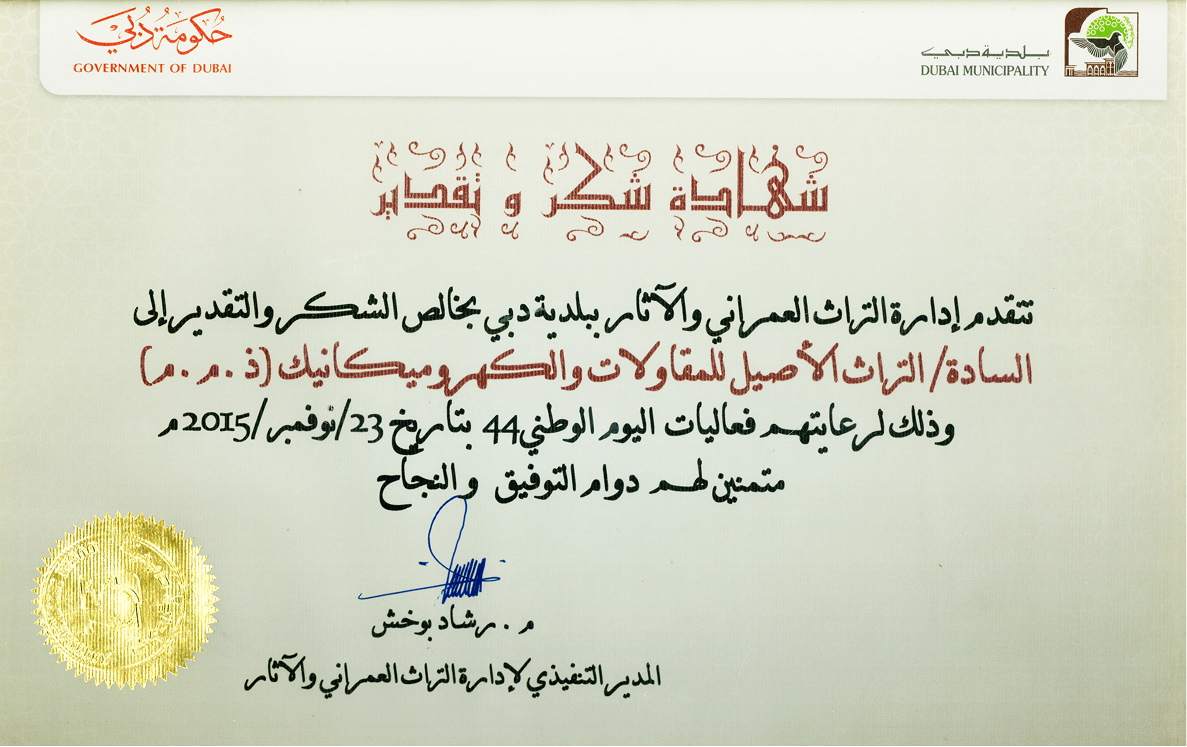 حكومة دبي
GOVERNMENT OF DUBAI
بلدية دبي
DUBAI MUNICIPALITY
شهادة شكر و تقدير
تتقدم إدارة التراث العمراني والآثار ببلدية دبي بخالص الشكر والتقدير إلى
السادة/ التراث الأصيل للمقاولات والكهروميكانيك (ذ.م.م)
وذلك لرعايتهم فعاليات اليوم الوطني44 بتاريخ 23/نوفمبر/2015م
متمنين لهم دوام التوفيق والنجاح
م. رشاد بوخش
المدير التنفيذي لإدارة التراث العمراني والآثار